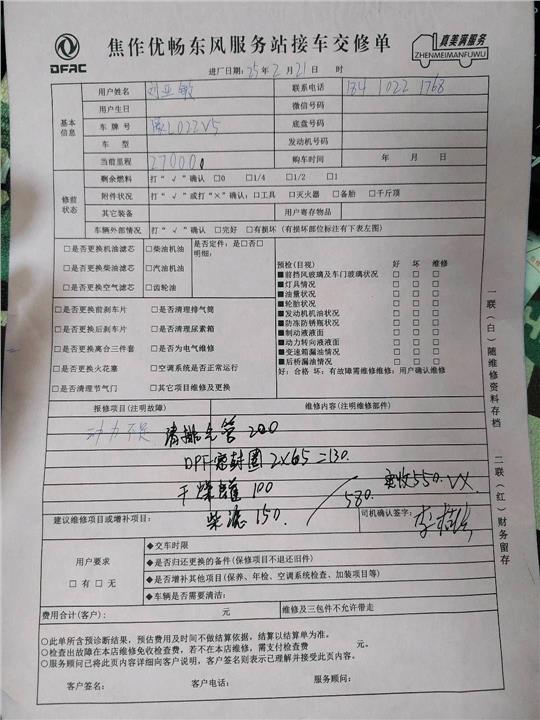 DFAC
焦作优畅东风服务站接车交修单
真美满服务
ZHENMEIMANFUWU
进厂日期：25年2月21日 时
基本信息
用户姓名 刘亚敏 联系电话 184 1022 1768
用户生日 微信号码
车牌号 豫L022V5 底盘号码
车型 发动机号码
当前里程 270000 购车时间 年 月 日
修前状态
剩余燃料 打“√”确认 □0 □1/4 □1/2 □1
附件状况 打“√”或打“×”确认：□工具 □灭火器 □备胎 □千斤顶
其它装备 用户寄存物品
车辆外部情况 打“√”确认 □完好 □有损坏（有损坏部位标注有下表左图）
□是否更换机油滤芯 □柴油机油
□是否更换柴油滤芯 □汽油机油
□是否更换空气滤芯 □齿轮油
是否定件：是□否□
明细：
□是否更换前刹车片 □是否清理排气筒
□是否更换后刹车片 □是否清理尿素箱
□是否更换离合三件套 □是否为电气维修
□是否更换火花塞 □空调系统是否正常运行
□是否清理节气门 □其它项目维修及更换
预检（目视） 好 坏 维修
■前挡风玻璃及车门玻璃状况 □ □ □
■灯具情况 □ □ □
■油量状况 □ □ □
■轮胎状况 □ □ □
■发动机机油状况 □ □ □
■防冻防锈瓶状况 □ □ □
■制动液液面 □ □ □
■动力转向液液面 □ □ □
■变速箱漏油情况 □ □ □
■后桥漏油情况 □ □ □
好：合格 坏：有故障需维修维修：用户确认维修
报修项目（注明故障） 维修内容（注明维修部件）
动力不足 清排气管 200
DPF密封圈 2×65=130.
干燥罐 100
柴滤 150.
580.
实收550.
建议维修项目或增补项目： 司机确认签字：
用户要求
□有 □无
◆交车时限
◆是否归还更换的备件（保修项目不退还旧件）
◆是否增补其他项目（保养、年检、空调系统检查、加装项目等）
◆车辆是否需要清洁：
费用合计（客户）： 元 维修及三包件不允许带走
○此单所含预诊断结果，预估费用及时间不做结算依据，结算以结算单为准。
○检查出故障在本店维修免收检查费，若不在本店维修，需支付检查费 元。
○服务顾问已将此页内容详细向客户说明，客户签名则表示已理解并接受此页内容。
客户签名： 客户电话： 服务顾问：
一联（白）随维修资料存档
二联（红）财务留存